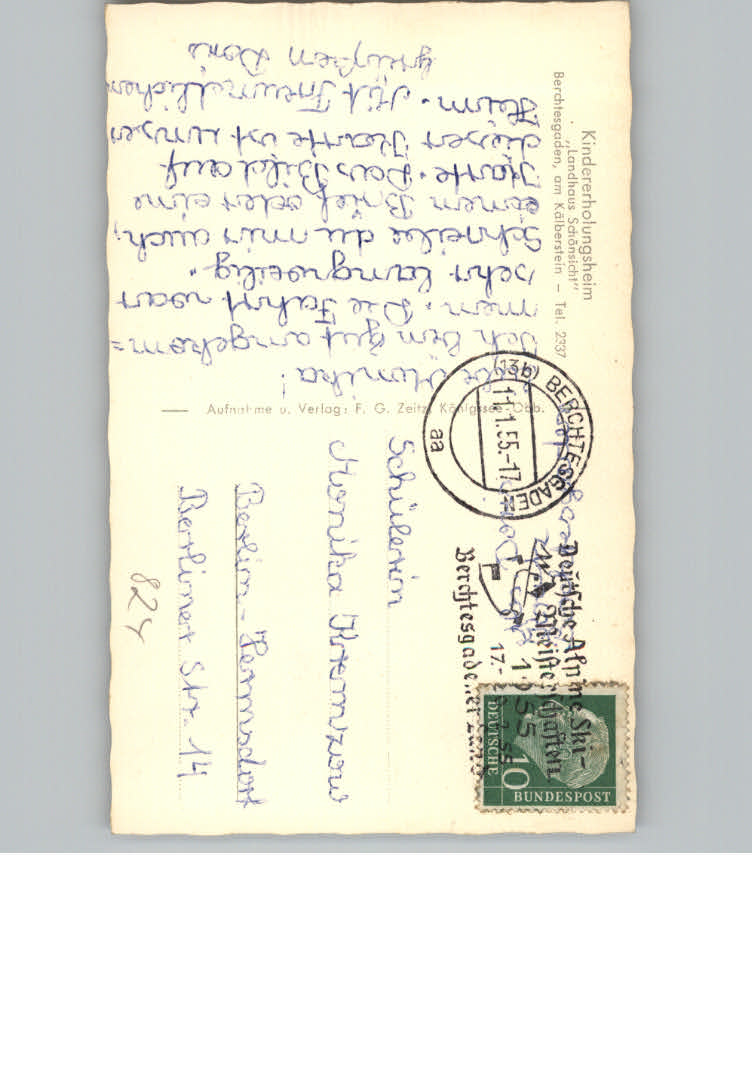 Kindererholungsheim
„Landhaus Schönsicht"
Berchtesgaden, am Kälberstein – Tel. 2337
Liebe Monika!
Ich bin gut angekom=
men. Die Fahrt war
sehr langweilig.
Schreibe du mir auch,
einen Brief oder eine
Karte. Das Bild auf
dieser Karte ist unser
Heim. Mit Freundlichen
grüßen Doris
Aufnahme u. Verlag: F. G. Zeitz, Königssee-Obb.
(13b) BERCHTESGADEN
11.1.55.-17
aa
Deutsche Alpine Ski-
Meisterschaften
1955
17.-
Berchtesgadener Land
DEUTSCHE
10
BUNDESPOST
Schülerin
Monika Kremzow
Berlin-Hermsdorf
Berliner Str. 14
824